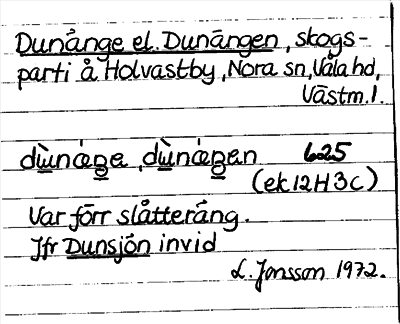 Dunänge el. Dunängen, skogs-
parti å Holvastby, Nora sn, Våla hd,
Västm. l.
dùnæ̀ŋe, dùnæ̀ŋen 625
(ek 12H 3c)
Var förr slåtteräng.
Jfr Dunsjön invid
L. Jonsson 1972.